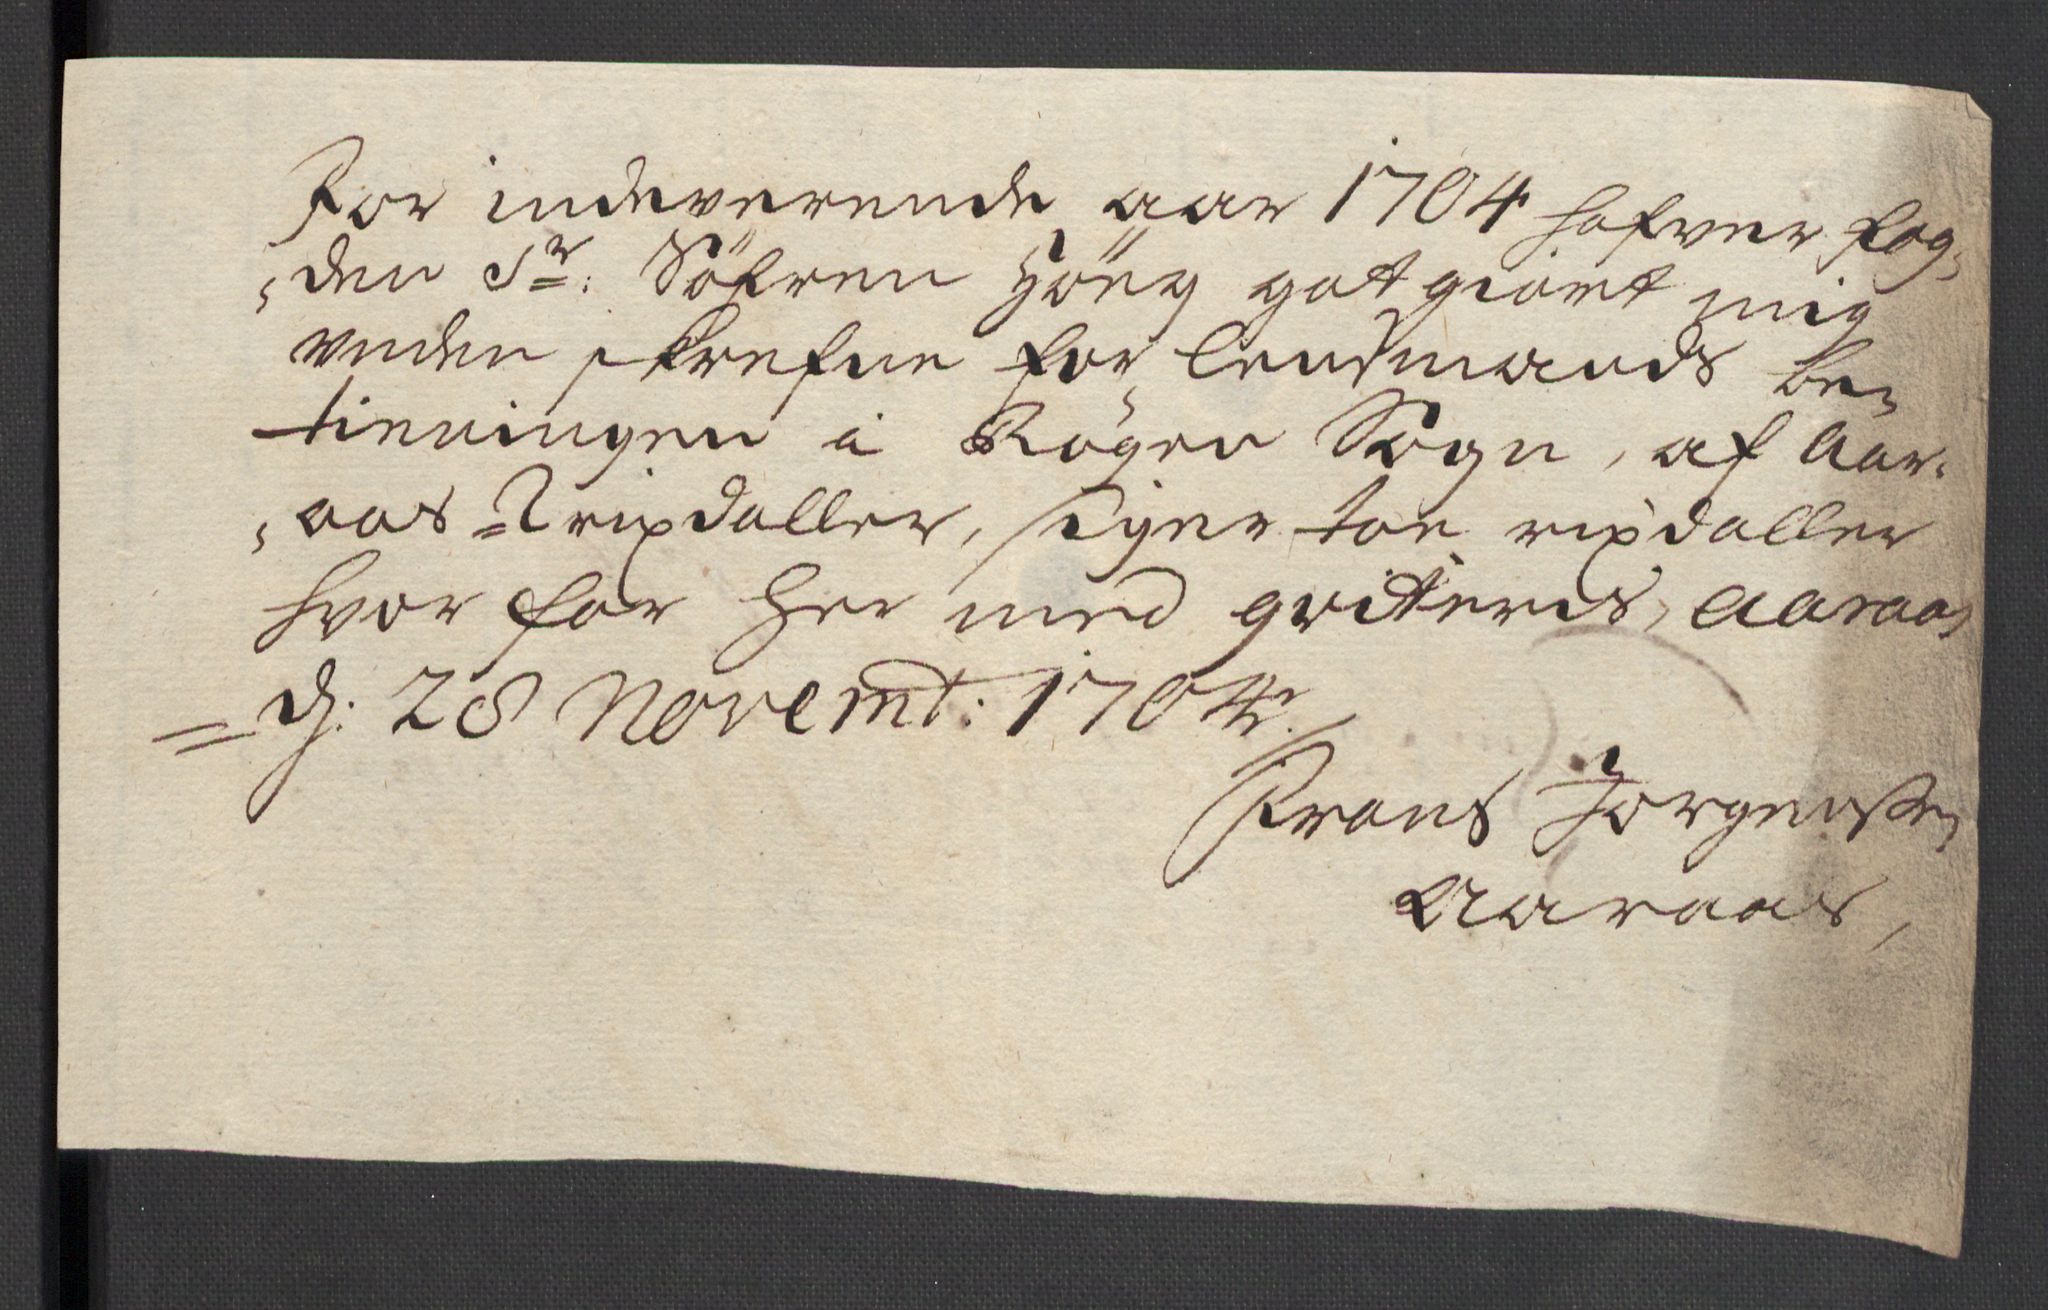 For indeverende aar 1704 hafver fog-
-den Sr: Söfren Höeg got giört mig
unden skrefne for Lensmands be-
tieningen i Röyen Sogn, af Aar-
-aas 2 rixdaller, siger toe rixdaller
hvor for her med qvitteris, Aaraas
d: 28 Novembr: 1704
Frans Jörgensen
Aaraas,